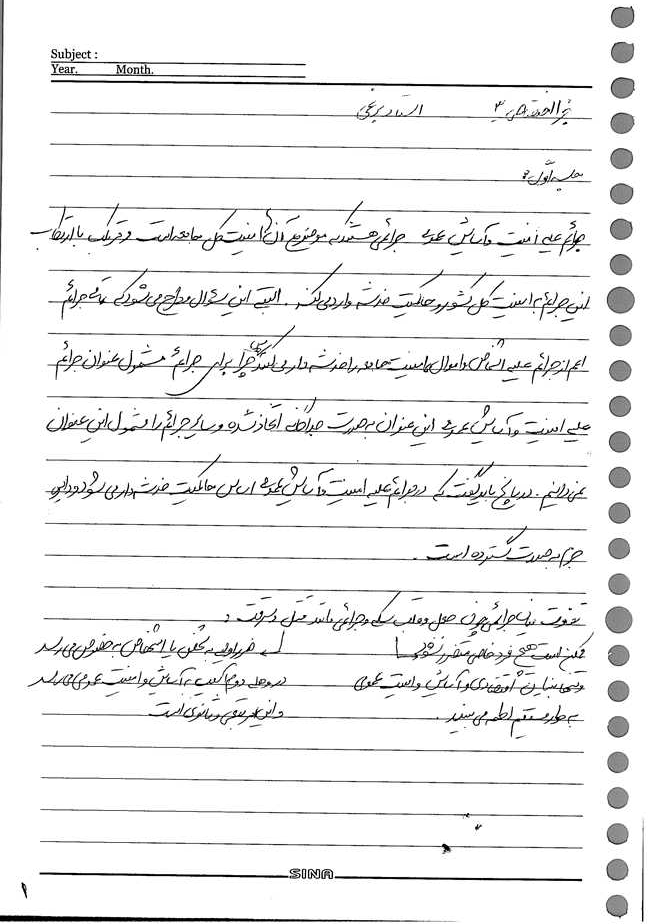 Subject :
Year. Month.
جزای اختصاصی ۳ استاد برعی
جلسه اول :
جرائم علیه امنیت و آسایش عمومی جرائمی هستند که موضوع آن ها امنیت کل جامعه است و مرتکب با ارتکاب
این جرائم به امنیت کل کشور و حاکمیت خدشه وارد می کند . البته این سؤال مطرح می شود که تمامی جرائم
اعم از جرائم علیه اشخاص و اموال امنیت جامعه را خدشه دار می کنند پس چرا برای جرائم مشمول عنوان جرائم
علیه امنیت و آسایش عمومی این عنوان به صورت جداگانه اتخاذ شده و سایر جرائم را مشمول این عنوان
نمی دانیم . در پاسخ باید گفت که در جرائم علیه امنیت و آسایش عمومی اساس حاکمیت خدشه دار می شود و این
جرم به صورت گسترده است .
تفاوت میان جرائمی چون جعل و قلب سکه و جرائمی مانند قتل و سرقت :
ممکن است هیچ فرد خاصی متضرر نشود ضرر اولیه به شخص یا اشخاص به خصوص می رسد
و تنها بنیان اقتصادی و آسایش و امنیت عمومی در وهله دوم آسیب به آسایش و امنیت عمومی می رسد
به طور مستقیم لطمه می بیند . و این امر تبعی و ثانوی است
SINA
۱